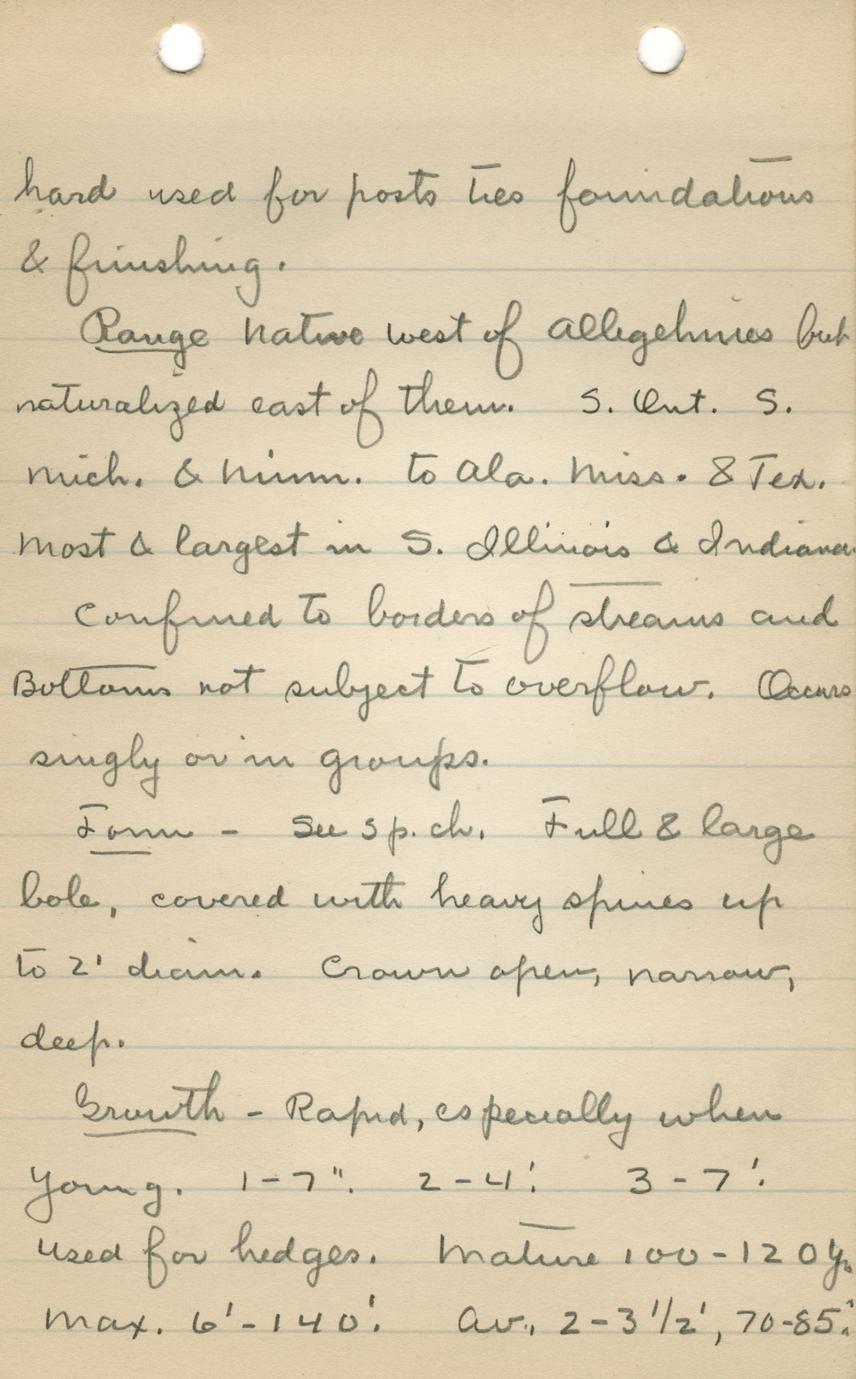 hard used for posts ties foundations
& finishing.
Range native west of Alleghenies but
naturalized east of them. S. Ont. S.
Mich. & Minn. to Ala. Miss. & Tex.
Most & largest in S. Illinois & Indiana.
Confined to borders of streams and
Bottoms not subject to overflow. Occurs
singly or in groups.
Form - See sp. ch. Full & large
bole, covered with heavy spines up
to 2' diam. Crown open, narrow,
deep.
Growth - Rapid, especially when
young. 1-7". 2-4'. 3-7'.
used for hedges. Mature 100-120 y.
Max. 6'-140'. Av. 2-3 1/2', 70-85.'